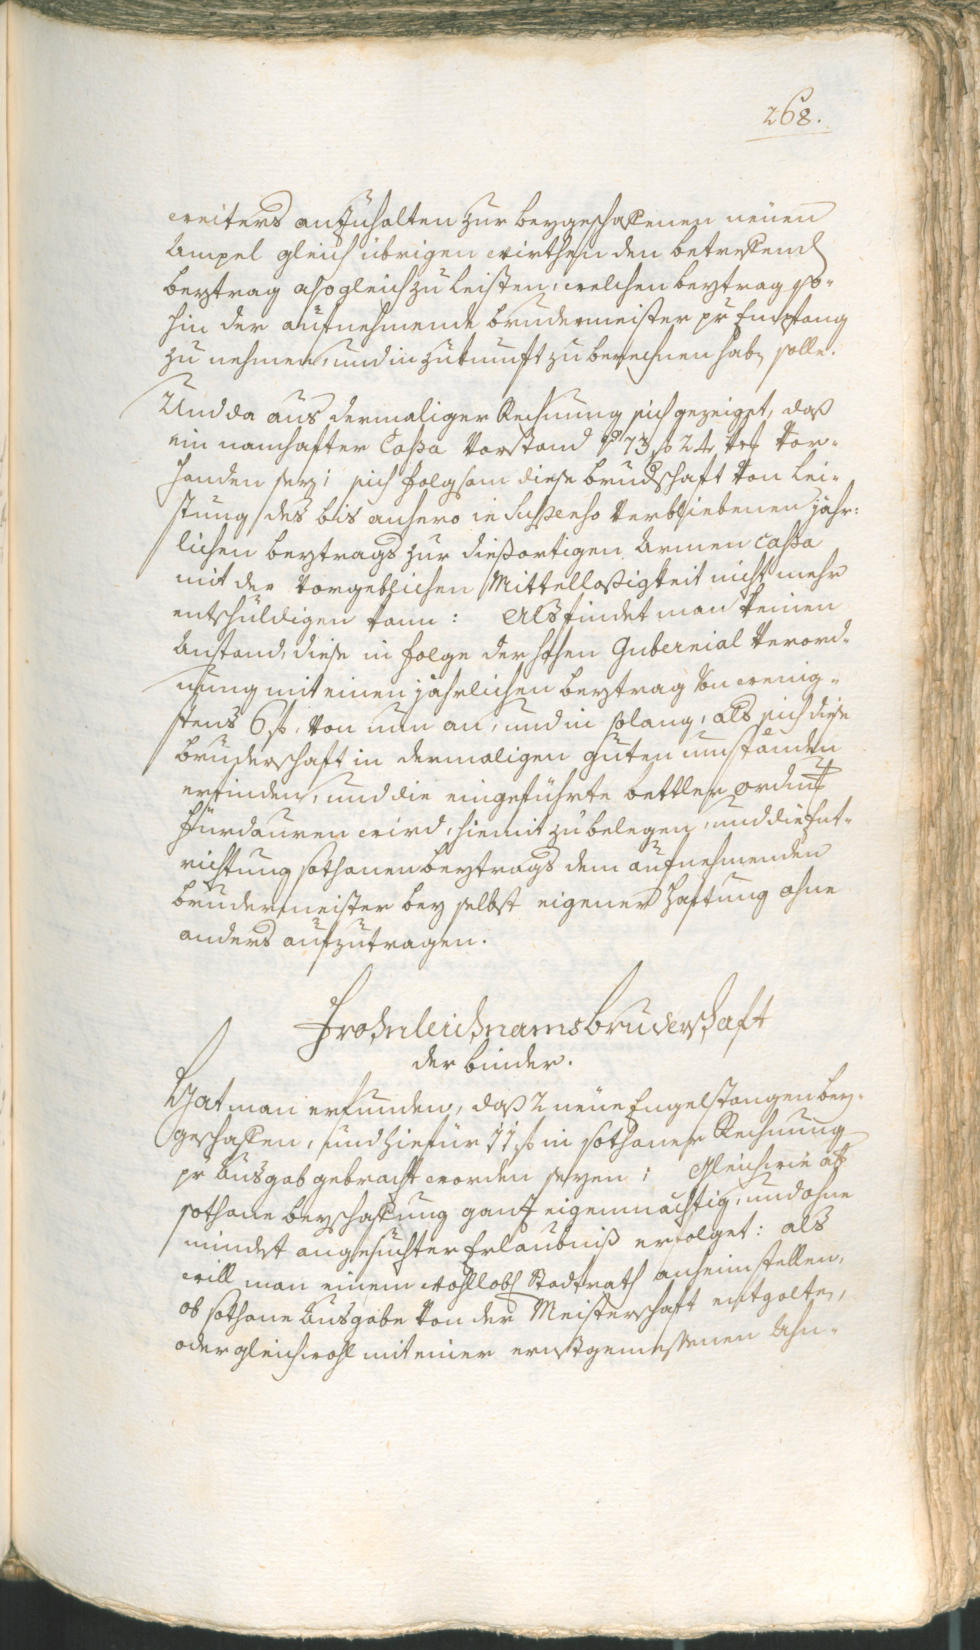 268.
weiters anzuhalten zur beygeschaffenen neuen
Ampel gleich übrigen wirthen den betreffend
beytrag also gleich zu leisten, welchen beytrag so-
hin der aufnehmende brudermeister pr Empfang
zu nehmen, und in zukunft zu berechnen hab solle.
Und da aus dermaliger Rechnung sich gezeiget, daß
ein namhafter Cassa Vorstand pr 73 f 24 kr Vor-
handen sey; sich folgsam diese brudschaft von lei-
stung des bis anhero in suspenso verbliebenen jähr-
lichen beytrags zur dießortigen Armen Cassa
mit der vorgeblichen Mittellosigkeit nicht mehr
entschuldigen kann: Als findet man keinen
Anstand, diese in folge der hohen Gubernial Verord-
nung mit einen jährlichen beytrag von wenig-
stens 6 f. von nun an, und in solang, als sich diese
bruderschaft in dermaligen guten umständen
erfinden, und die eingeführte bettler ordnung
fürdauren wird, hiemit zu belegen, und die Ent-
richtung sothanen beytrags dem aufnehmenden
brudermeister bey selbst eigener Haftung ohne
anders aufzutragen.
Frohnleichnamsbruderschaft
der binder.
Hat man erfunden, daß 2 neue Engelstangen bey-
geschaffen, und hiefür 11 f in sothaner Rechnung
pr Ausgab gebracht worden seyen; Gleichwie aber
sothane beyschaffung ganz eigenmächtig, und ohne
mindest angesuchter Erlaubniß erfolget: als
will man einem wohllobl Stadtrath anheimstellen,
ob sothane Ausgabe von der Meisterschaft entgolten,
oder gleichwohl mit einer ernstgemessenen Ahn-